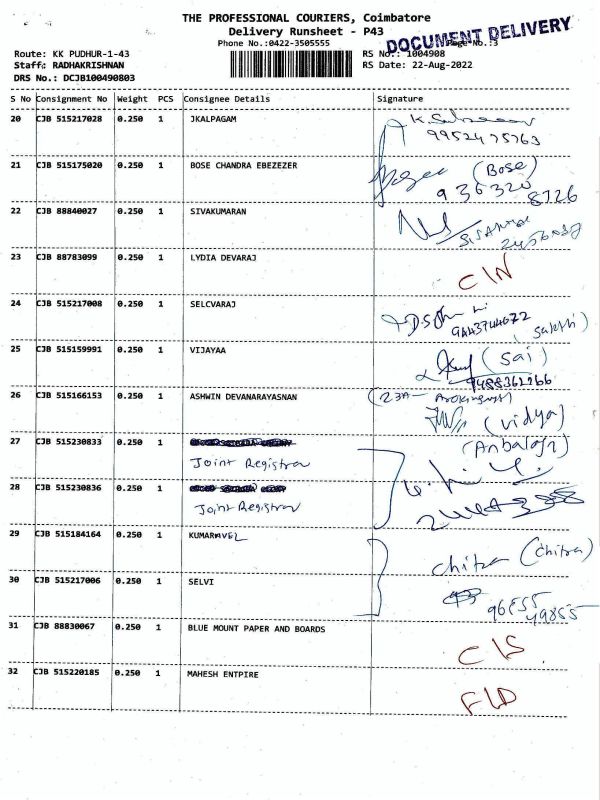 THE PROFESSIONAL COURIERS, Coimbatore
Delivery Runsheet - P43
Phone No.:0422-3505555
DOCUMENT DELIVERY
Page No.:3
Route: KK PUDHUR-1-43
RS No.: 1004908
Staff: RADHAKRISHNAN
RS Date: 22-Aug-2022
DRS No.: DCJB100490803
S No Consignment No Weight PCS Consignee Details Signature
20 CJB 515217028 0.250 1 JKALPAGAM
21 CJB 515175020 0.250 1 BOSE CHANDRA EBEZEZER (Bose)
936320
8726
22 CJB 88840027 0.250 1 SIVAKUMARAN
23 CJB 88783099 0.250 1 LYDIA DEVARAJ
C/N
24 CJB 515217008 0.250 1 SELCVARAJ
9443744672
25 CJB 515159991 0.250 1 VIJAYAA
(Sai)
9488362766
26 CJB 515166153 0.250 1 ASHWIN DEVANARAYASNAN
(23A-
(vidya)
27 CJB 515230833 0.250 1
(Anbalagi)
Joint Registrar
28 CJB 515230836 0.250 1
Joint Registrar
29 CJB 515184164 0.250 1 KUMARAVEL
Chitra (Chitra)
30 CJB 515217006 0.250 1 SELVI
96555
49855
31 CJB 88830067 0.250 1 BLUE MOUNT PAPER AND BOARDS
C/S
32 CJB 515220185 0.250 1 MAHESH ENTPIRE
F/D